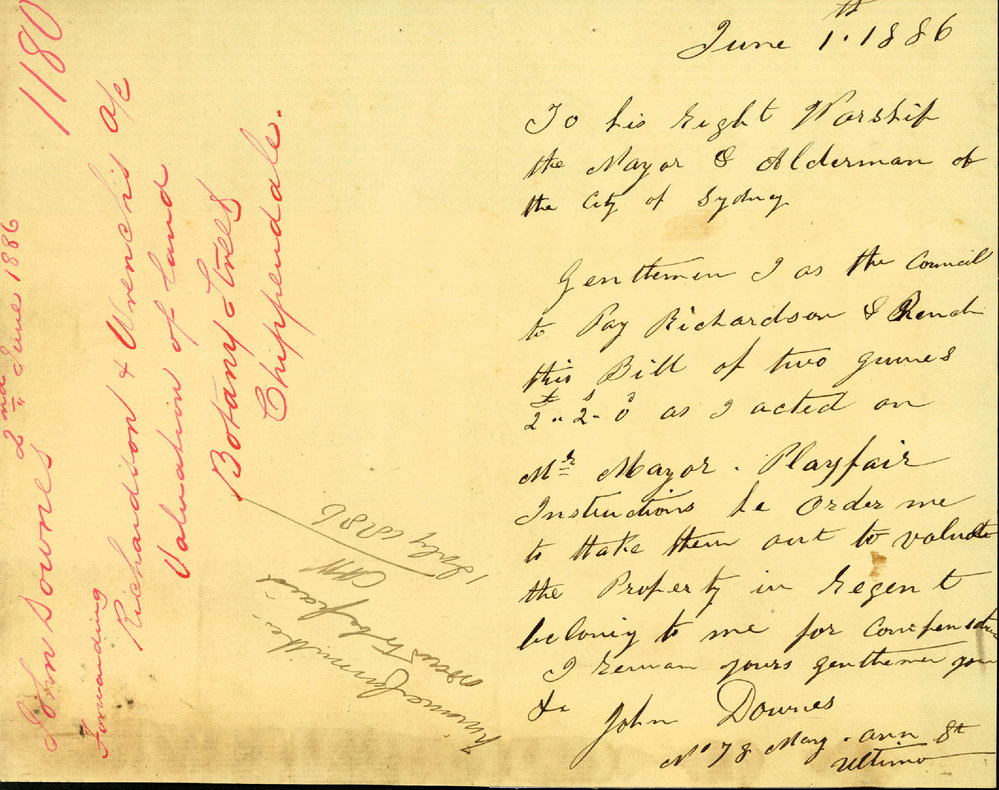 June 1th. 1886
To his Right Worship
the Mayor & Alderman of
the City of Sydney
Gentlemen I as the Council
to Pay Richardson & Rench
this Bill of two gunies
£2 " 2s " 0d as I acted on
Mr Mayor . Playfair
Instructions he order me
to take them out to valuate
the Property in Regent
belonig to me for compensation
I Remain yours gentlemen your
&c
John Downes
No 78 Mary-ann St
Ultimo
1180
John Downes
2nd June 1886
Forwarding
Richardson & Wrenchs a/c
Valuation of land
Botany Street
Chippendale.
Finance Committee
not to be paid
1 July 1886